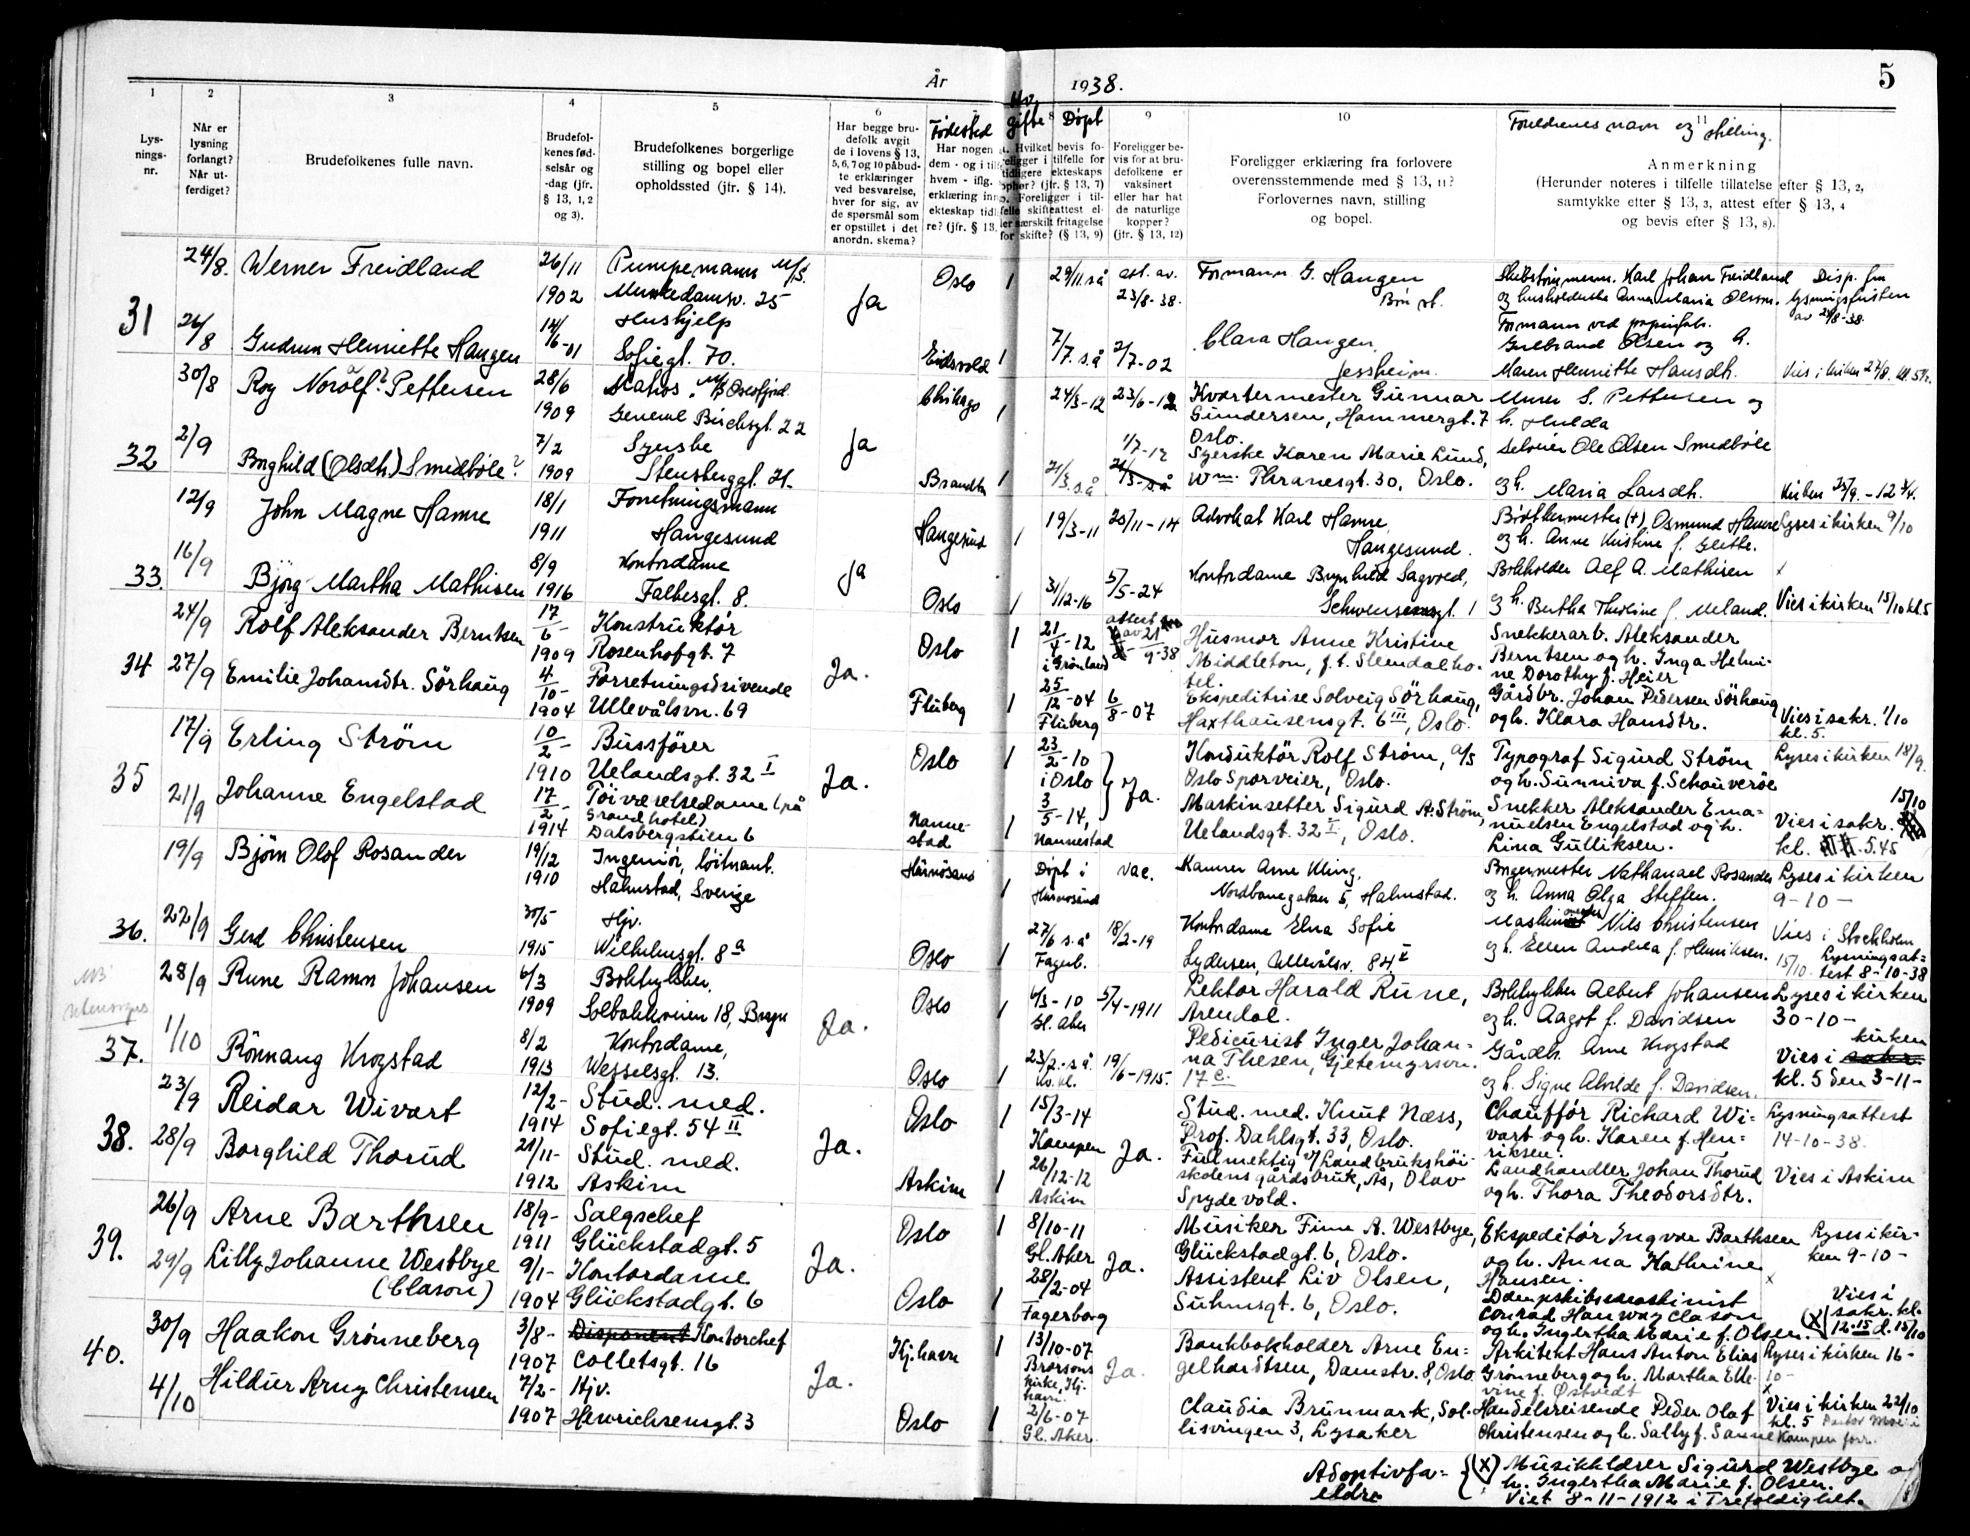 År 1938. 5
1 2 3 4 5 6 8 9 10 11
Lys-
nings-
nr.
Når er
lysning
forlangt?
Når ut-
ferdiget?
Brudefolkenes fulle navn.
Brudefol-
kenes fød-
selsår og
-dag (jfr.
§ 13, 1, 2
og 3).
Brudefolkenes borgerlige
stilling og bopel eller
opholdssted (jfr. § 14).
Har begge bru-
defolk avgit
de i lovens § 13,
5, 6, 7 og 10 påbud-
te erklæringer
ved besvarelse,
hver for sig, av
de spørsmål som
er opstillet i det
anordn. skema?
Fødested
Har nogen a
dem - og i tilf
hvem - iflg.
erklæring inn
ekteskap tidl
re? (jfr. § 13,
gifte Døpt
Hvilket bevis fo-
religger i tilfelle for
tidligere ekteskaps
ophør? (jfr. § 13, 7)
Foreligger i til-
felle skifteattest el-
ler særskilt fritagelse
for skifte? (§ 13, 9)
Foreligger be-
vis for at bru-
defolkene er
vaksinert
eller har hat
de naturlige
kopper?
(jfr. § 13, 12)
Foreligger erklæring fra forlovere
overensstemmende med § 13, 11?
Forlovernes navn, stilling
og bopel.
Foreldrenes navn og stilling.
Anmerkning
(Herunder noteres i tilfelle tillatelse efter § 13, 2,
samtykke etter § 13, 3, attest efter § 13, 4
og bevis efter § 13, 8).
31
24/8. Werner Freidland 26/11 1902 Pumpemann M/S.
Munkedamsv. 25
Ja Oslo 1 29/11 s.å att. av. 23/8-38.
Formann G. Haugen
Skibstømmerm. Karl Johan Freidland
og husholderske Anna Maria Olsson.
Disp. fra
lysningsfristen
av 24/8-38.
26/8 Gudrun Henriette Haugen 14/6-01 Hushjelp
Sofiegt. 70.
Eidsvold 1 7/7. s.å 2/7-02
Clara Haugen,
Jessheim.
Formann ved papirfabr.
Gulbrand Olsen og
Maren Henriette Hansdh.
Vies i kirken 27/8. kl. 5½.
32
30/8 Roy Norolf? Pettersen 28/6 1909 Matros. M/S Oslofjord
General Birchsgt. 22
Ja Chikago 1 24/3-12 23/6-12
Kvartermester Gunnar
Gundersen, Hammergt. 7
Oslo.
Murer S. Pettersen og
h. Hulda
2/9 Borghild (Olsdh.) Smedbøle? 7/2 1909 Syerske
Stensberggt. 21.
Brandbu 1 21/3. s.å 1/7-12
Syerske Karen Marie Lund,
Wm. Thranesgt. 30, Oslo.
Selveier Ole Olsen Smedbøle
og h. Maria Larsdh.
Kirken 25/9. - 12¾.
33.
12/9 John Magne Hamre 18/1 1911 Forretningsmann
Haugesund
Ja Haugesund 1 19/3-11 25/11-14
Advokat Karl Hamre,
Haugesund.
Bødkermester (+) Osmund Hamre
og h. Anne Kristine f. Glette.
Lyses i kirken 9/10
16/9 Bjørg Martha Mathisen 8/9 1916 Kontordame
Falbesgt. 8.
Oslo 1 31/12-16 5/5-24
Kontordame Brynhild Sagvold,
Schwensensgt. 1
Bokholder Alf A. Mathisen
og h. Bertha Theoline f. Meland.
Vies i kirken 15/10 kl 5
34
24/9 Rolf Aleksander Berntsen 17/6- 1909 Konstruktør
Rosenhofgt. 7
Ja. Oslo 1 21/4-12
i Grønland
attest av 21/9-38
Husmor Anne Kristine
Middleton, f. t. Slemdal ho-
tel.
Snekkerarb. Aleksander
Berntsen og h. Inga Helmi-
ne Dorothy f. Heier
27/9 Emilie Johansdtr. Sørhaug 4/10- 1904 Forretningsdrivende
Ullevålsvn. 69
Fluberg 1 25/12-04
Fluberg
6/8-07
Ekspeditrise Solveig Sørhaug,
Haxthausensgt. 6 III, Oslo.
Gårdbr. Johan Pedersen Sørhaug
og h. Klara Hansdtr.
Vies i sakr. 1/10
kl. 5.
35
17/9 Erling Strøm 10/2- 1910 Bussfører
Uelandsgt. 32 I
Ja. Oslo 1 23/2-10
i Oslo
Ja.
Konduktør Rolf Strøm, A/S
Oslo Sporveier, Oslo.
Typograf Sigurd Strøm
og h. Sunniva f. Schauverøe
Lyses i kirken 18/9.
21/9 Johanne Engelstad 17/2- 1914 Tøiværelsedame (på
Grand hotel)
Dalsbergstien 6
Nanne-
stad 1 3/5-14,
Nannestad
Maskinsetter Sigurd A. Strøm,
Uelandsgt. 32 I, Oslo.
Snekker Aleksander Ema-
nuelsen Engelstad og h.
Lina Gulliksen.
15/10
Vies i sakr.
kl. 5.45
36.
19/9 Bjørn Olof Rosander 19/12 1910 Ingeniør, løitnant.
Halmstad, Sverige
Härnösand 1 Døpt i
Härnösand
vac.
Kamrer Arne Kling,
Nordbanegatan 5, Halmstad.
Borgermester Nathanael Rosander
og h. Anna Olga Steffen.
Lyses i kirken
9-10-
22/9 Gerd Christensen 30/5 1915 Hjv.
Wilhelmsgt. 8 a
Oslo 1 27/6 s.å
Fagerb.
18/2-19
Kontordame Elna Sofie
Lydersen, Ullevålsv. 84 V
Nils Christensen
og h. Ellen Andrea f. Henriksen.
Vies i Stockholm
15/10. Lysningsat-
test 8-10-38
37.
NB
28/9 Rune Ramm Johansen 6/3 1909 Boktrykker,
Solbakkveien 18, Bryn
Ja. Oslo 1 6/3-10
Gl. Aker
5/4-1911
Lektor Harald Rune,
Arendal.
Boktrykker Albert Johansen
og h. Aagot f. Davidsen
Lyses i kirken
30-10-
1/10 Rønnaug Krogstad 8/2 1913 Kontordame,
Wesselsgt. 13.
Oslo 1 23/7.-s.å. 19/6-1915.
Pedicurist Inger Johan-
na Thesen, Gjetemyrsvn.
17 c.
Gårdb. Arne Krogstad
og h. Signe Alvilde f. Davidsen.
Vies i kirken
kl. 5 den 3-11-
38.
23/9 Reidar Wivart 12/2- 1914 Stud. med.
Sofiegt. 54 II
Ja. Oslo 1 15/3-14
Kampen
Ja.
Stud. med. Knut Næss,
Prof. Dahlsgt. 33, Oslo.
Chauffør Richard Wi-
vart og h. Karen f. Hen-
riksen.
Lysningsattest
14-10-38.
28/9 Borghild Thorud 21/11- 1912 Stud. med.
Askim
Askim 1 26/12-12
Askim
Fullmektig v/ Landbrukshøi-
skolens gårdsbruk, Ås, Olav
Spydevold.
Landhandler Johan Thorud
og h. Thora Theodorsdtr.
Vies i Askim
39.
26/9 Arne Barthsen 18/9- 1911 Salgschef
Glückstadgt. 5
Ja. Oslo 1 8/10-11
Gl. Aker
Ja.
Musiker Finn A. Westbye,
Glückstadgt. 6, Oslo.
Ekspeditør Ingvar Barthsen
og h. Anna Kathrine
Hansen.
Lyses i kir-
ken 9-10-
29/9 Lilly Johanne Westbye
(Clason)
9/1- 1904 Kontordame
Glückstadgt. 6
Oslo 1 28/2-04
Fagerborg
Assistent Liv Olsen,
Suhmsgt. 6, Oslo.
Dampskibsmaskinist
Conrad Hanway Clason
og h. Ingertha Marie f. Olsen.
(X) Vies i
sakr. kl.
12.15 d. 15/10
40.
30/9 Haakon Grønneberg 3/8- 1907 Disponent Kontorchef
Colletsgt. 16
Ja. Kj.havn 1 13/10-07
Brorsons
kirke, Kj-
havn.
Ja.
Bankbokholder Arne En-
gelhardtsen, Damstr. 8, Oslo
Arkitekt Hans Anton Elias
Grønneberg og h. Martha Elle-
vine f. Østvedt
Lyses i kirken 16-
10-
4/10 Hildur Arny Christensen 7/2- 1907 Hjv.
Henrichsensgt. 3
Oslo 1 2/6-07
Gl. Aker.
Claudia Brunmark, Sol-
lisvingen 3, Lysaker
Handelsreisende Peder Olaf
Christensen og h. Sally f. Sanne
Vies i kirken 22/10
kl. 5 Pastor Moe i
Kampen forr.
Adoptivfo-
eldre
{(X) Musikkhdler Sigurd Westbye og
h. Ingertha Marie f. Olsen.
Viet 8-11-1912 i Trefoldighet.